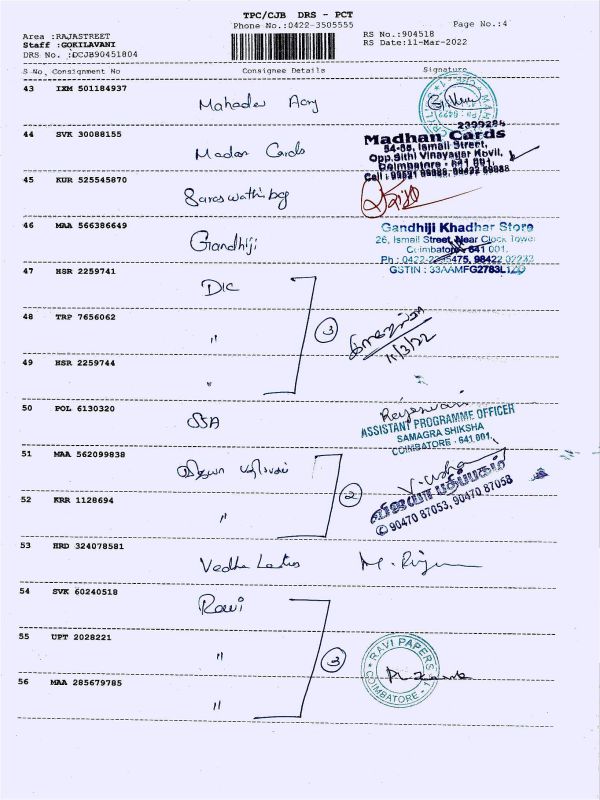 TPC/CJB DRS - PCT
Phone No.:0422-3505555
Page No.:4
Area :RAJASTREET
Staff :GOKILAVANI
DRS No. :DCJB90451804
RS No.:904518
RS Date:11-Mar-2022
S No. Consignment No Consignee Details Signature
43 IXM 501184937
Mahadev Acry
44 SVK 30088155
Madan Cards
2399284
Madhan Cards
54-55, Ismail Street,
Opp.Sithi Vinayagar Kovil,
Coimbatore - 641 001,
45 KUR 525545870
46 MAA 566386649
Gandhiji
Gandhiji Khadhar Store
26, Ismail Street, Near Clock Tower
Coimbatore 641 001.
GSTIN : 33AAMFG2783L1ZO
47 HSR 2259741
DIC
48 TRP 7656062
"
3
11/3/22
49 HSR 2259744
"
50 POL 6130320
SSA
ASSISTANT PROGRAMME OFFICER
SAMAGRA SHIKSHA
COIMBATORE - 641 001.
51 MAA 562099838
விஜயா பதிப்பகம்
V. Usha
விஜயா பதிப்பகம்
✆ 90470 87053, 90470 87058
52 KRR 1128694
"
2
53 HRD 324078581
Vedha
54 SVK 60240518
Ravi
55 UPT 2028221
"
3
RAVI PAPERS
COIMBATORE - 1
56 MAA 285679785
"